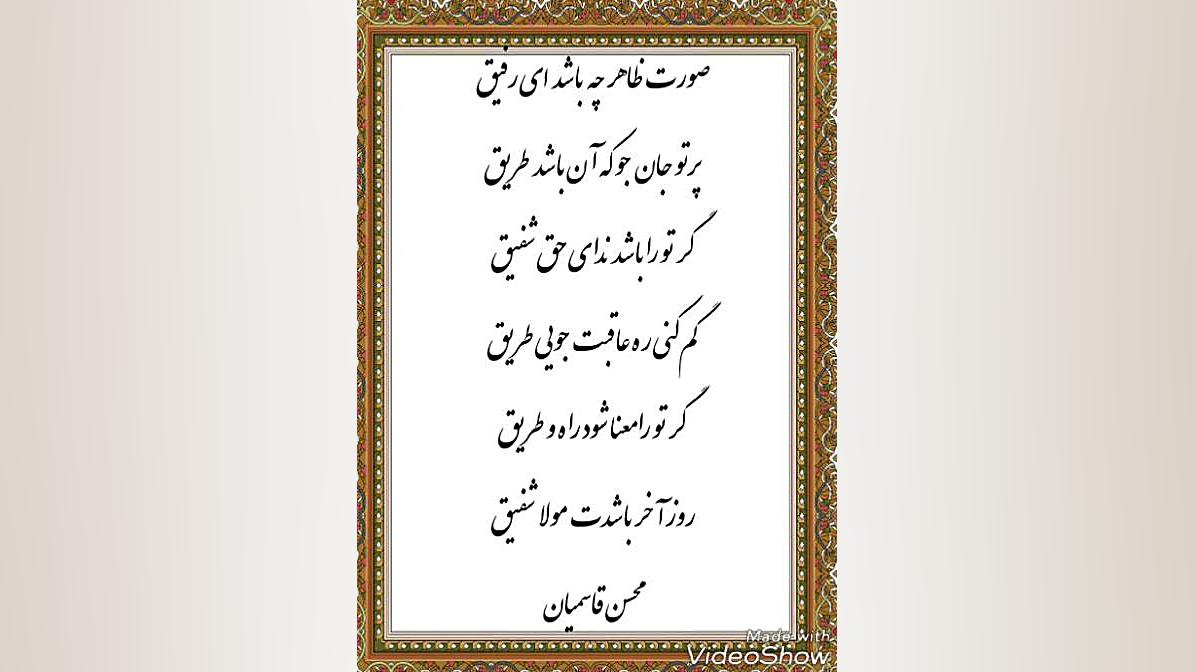 صورت ظاهر چه باشد ای رفیق
پرتو جان جو که آن باشد طریق
گر تو را باشد ندای حق شفیق
گم کنی ره عاقبت جویی طریق
گر تو را معنا شود راه و طریق
روز آخر باشدت مولا شفیق
محسن قاسمیان
Made with
VideoShow